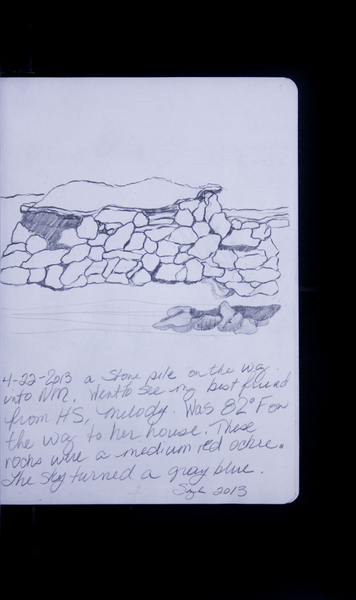 4-22-2013 a Stone pile on the way
into NM. Went to see my best friend
from HS, Melody. Was 82°F on
the way to her house. These
rocks were a medium red ochre.
The sky turned a gray blue.
2013